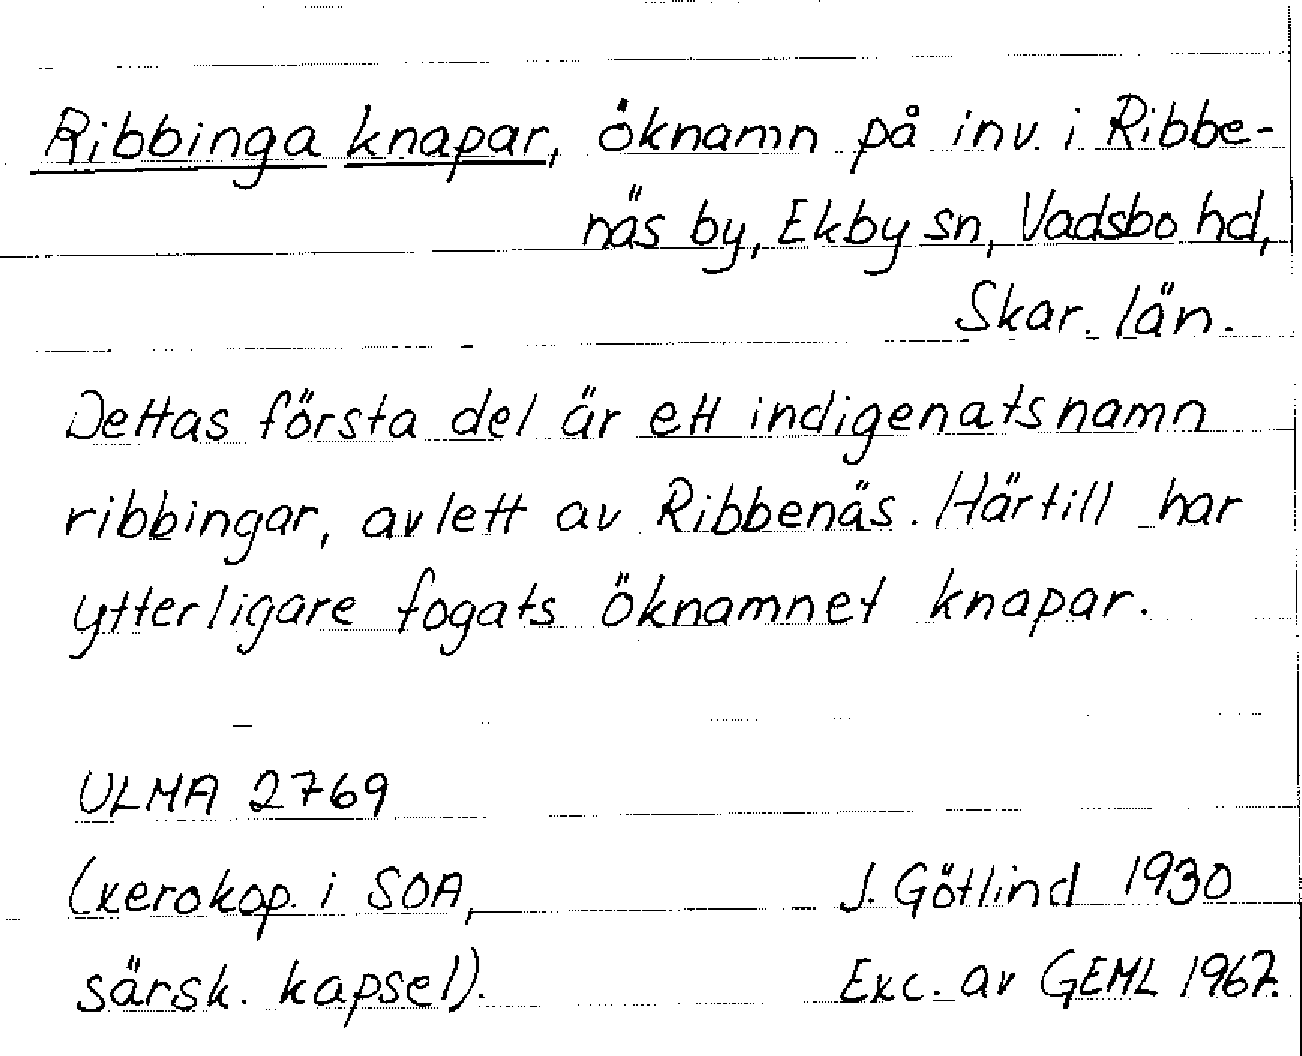 Ribbinga knapar, öknamn på inv. i Ribbe-
näs by, Ekby sn, Vadsbo hd,
Skar. län.
Dettas första del är ett indigenatsnamn
ribbingar, avlett av Ribbenäs. Härtill har
ytterligare fogats öknamnet knapar.
ULMA 2769
(xerokop. i SOA, J. Götlind 1930
särsk. kapsel). Exc. av GEML 1967.